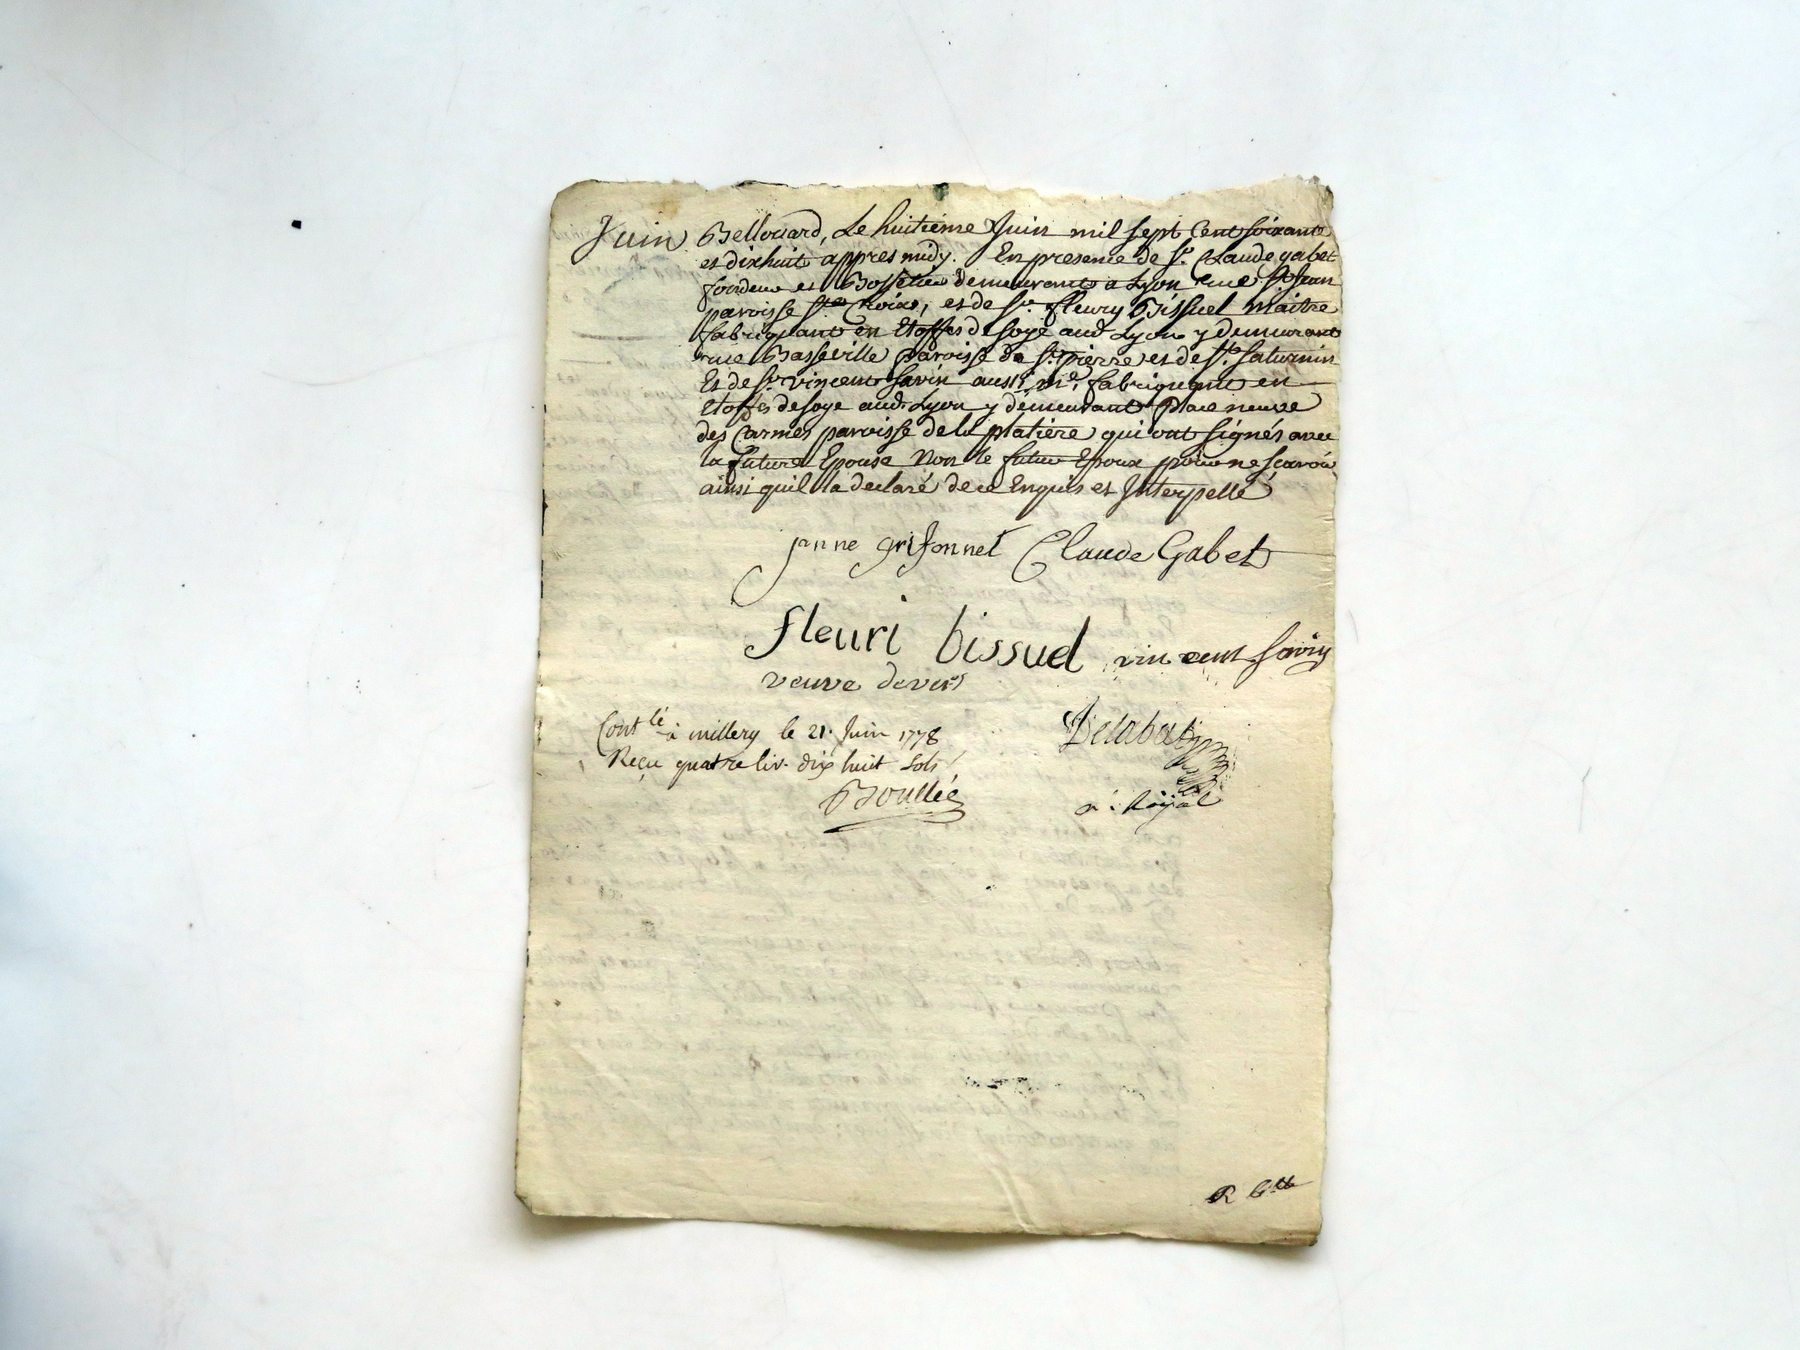 Juin Bellouard, Le huitieme Juin mil sept Cent soixante
et dixhuit appres midy. En presence de Sr. Claude gabet
fondeur et Bossetier demeurant a Lyon rue St Jean
paroisse Ste Croix, et de Sr fleury Bissuel maitre
fabriquant en Etoffes de soye aud. Lyon y demeurant
rue Basseville paroisse de St. pierre et de St. saturnin
Et de Sr. vincent Savin aussi me. fabriquant en
Etoffes de soye aud. Lyon y demeurant place neuve
des Carmes paroisse de la platiere qui ont signés avec
la future Epouse Non le futur Epoux pour ne scavoir
ainsi quil l'a declaré de ce Enquis et Interpellé
janne grifonnet Claude Gabet
fleuri bissuel vincent savin
veuve devers
Contlé à millery le 21. Juin 1778
Reçu quatre liv. dix huit sols
Boullée
Delabat
n. Royal
R